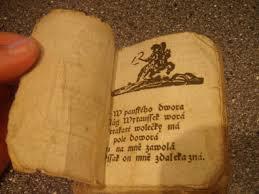 W panſkého dwora
Wytauſſek worá
wolečky má
pole doworá
na mně zawolá
on mně zdaleka zná.